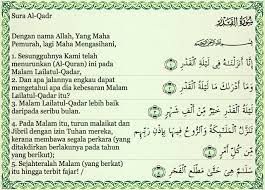 Sura Al-Qadr
Dengan nama Allah, Yang Maha
Pemurah, lagi Maha Mengasihani,
1. Sesungguhnya Kami telah
menurunkan (Al-Quran) ini pada
Malam Lailatul-Qadar,
2. Dan apa jalannya engkau dapat
mengetahui apa dia kebesaran Malam
Lailatul-Qadar itu?
3. Malam Lailatul-Qadar lebih baik
daripada seribu bulan.
4. Pada Malam itu, turun malaikat dan
Jibril dengan izin Tuhan mereka,
kerana membawa segala perkara (yang
ditakdirkan berlakunya pada tahun
yang berikut);
5. Sejahteralah Malam (yang berkat)
itu hingga terbit fajar! /
سُورَةُ الْقَدْرِ
إِنَّا أَنزَلْنَٰهُ فِي لَيْلَةِ الْقَدْرِ
وَمَا أَدْرَىٰكَ مَا لَيْلَةُ الْقَدْرِ
لَيْلَةُ الْقَدْرِ خَيْرٌ مِّنْ أَلْفِ شَهْرٍ
تَنَزَّلُ الْمَلَٰٓئِكَةُ وَالرُّوحُ فِيهَا بِإِذْنِ رَبِّهِم
مِّن كُلِّ أَمْرٍ
سَلَٰمٌ هِيَ حَتَّىٰ مَطْلَعِ الْفَجْرِ